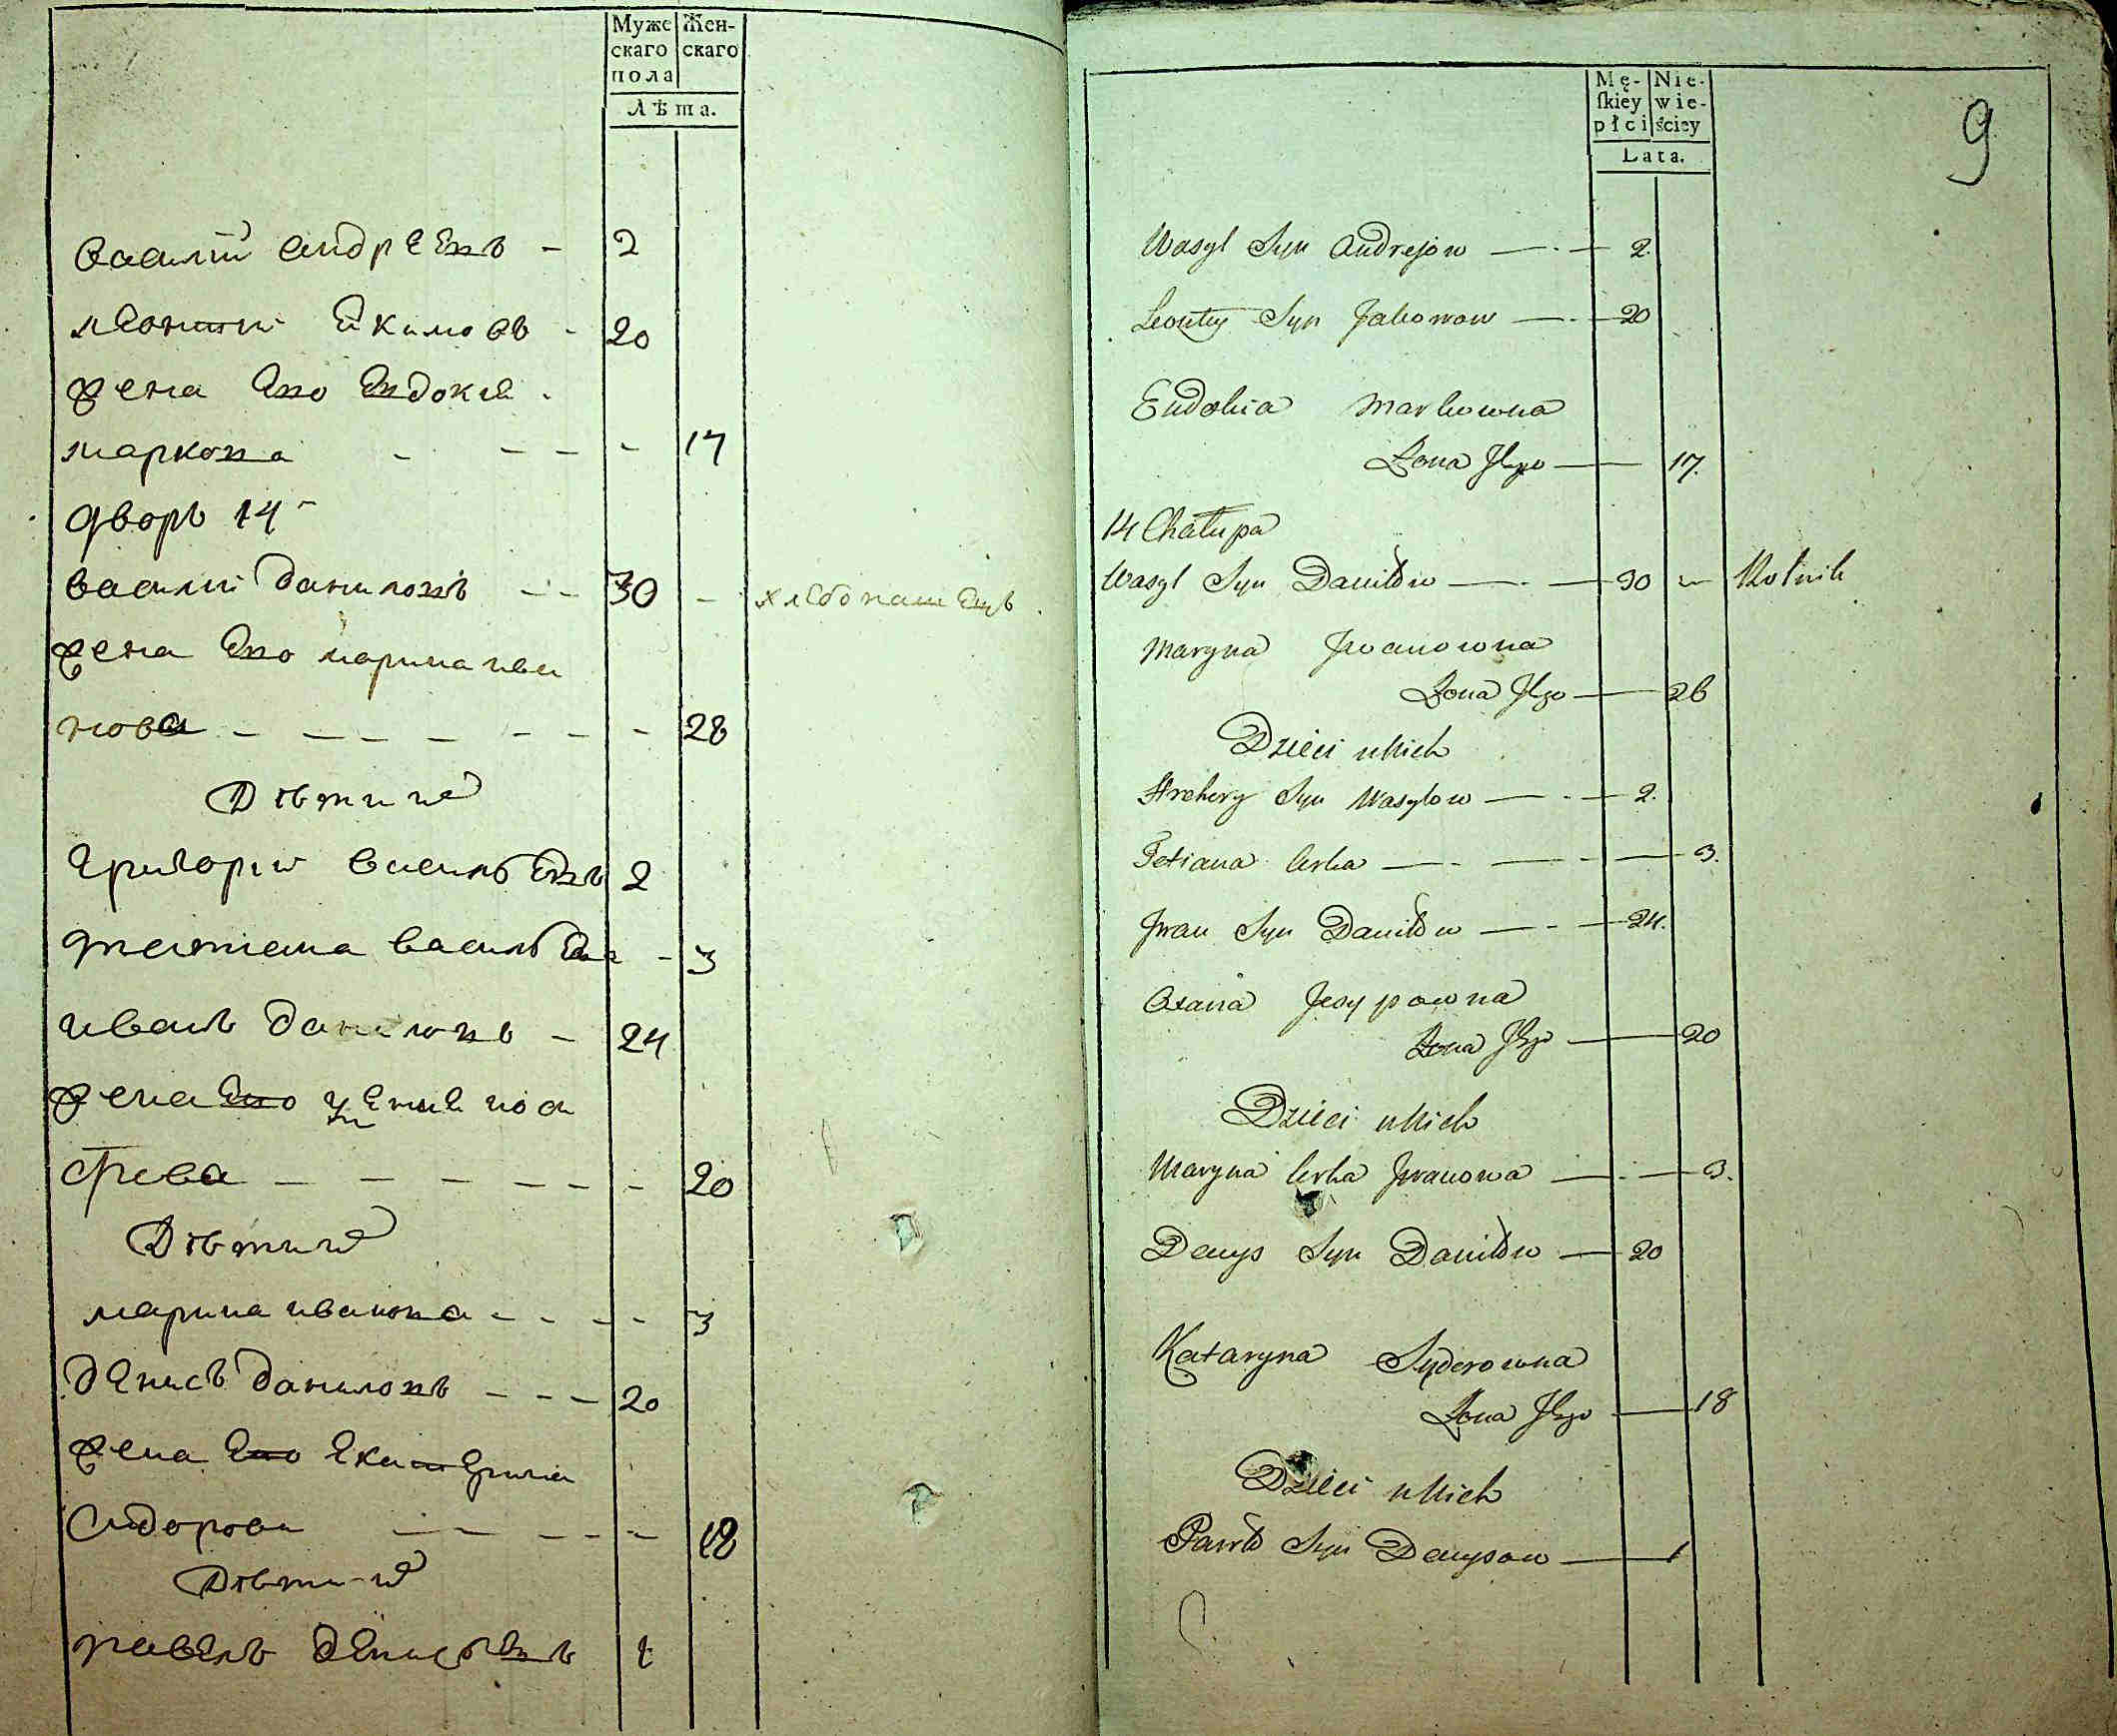 Муже
скаго
пола
Жен-
скаго
Лѣта.
василий андреевъ - 2
леонтий Екимовъ - 20
жена Ево Евдокия
маркова - - - - 17
дворъ 14
василий даниловъ - - 30 - хлебопашецъ
жена Ево марина ива
нова - - - - - - 28
Дѣти ихъ
григории василь Евъ 2
татиана василь Ева - 3
иванъ даниловъ - 24
жена Ево
- - - - - - 20
Дѣти ихъ
марина иванова - - - - 3
денисъ даниловъ - - - 20
жена Ево Екатерина
Сидорова - - - - - 18
Дѣти ихъ
павелъ денисьЕвъ 1
Mę-
skiey
płci
Nie-
wie-
ściey
Lata.
9
Wasyl Syn Andrejow — 2.
Leonty Syn Jakowow — 20
Eudokia Markowna
Żona Jego — 17.
14 Chałupa
Wasyl Syn Daniłow — 30 — Rolnik
Maryna Jwanowna
Żona Jego — 26
Dzieci u Nich
Hrehory Syn Wasylow — 2.
Tetiana Corka — 3.
Jwan Syn Daniłow — 24.
Oxana Josypowna
Żona Jego — 20
Dzieci u Nich
Maryna Corka Jwanowa — 3.
Denys Syn Daniłow — 20
Kataryna Syderowna
Żona Jego — 18
Dzieci u Nich
Pawło Syn Denysow — 1